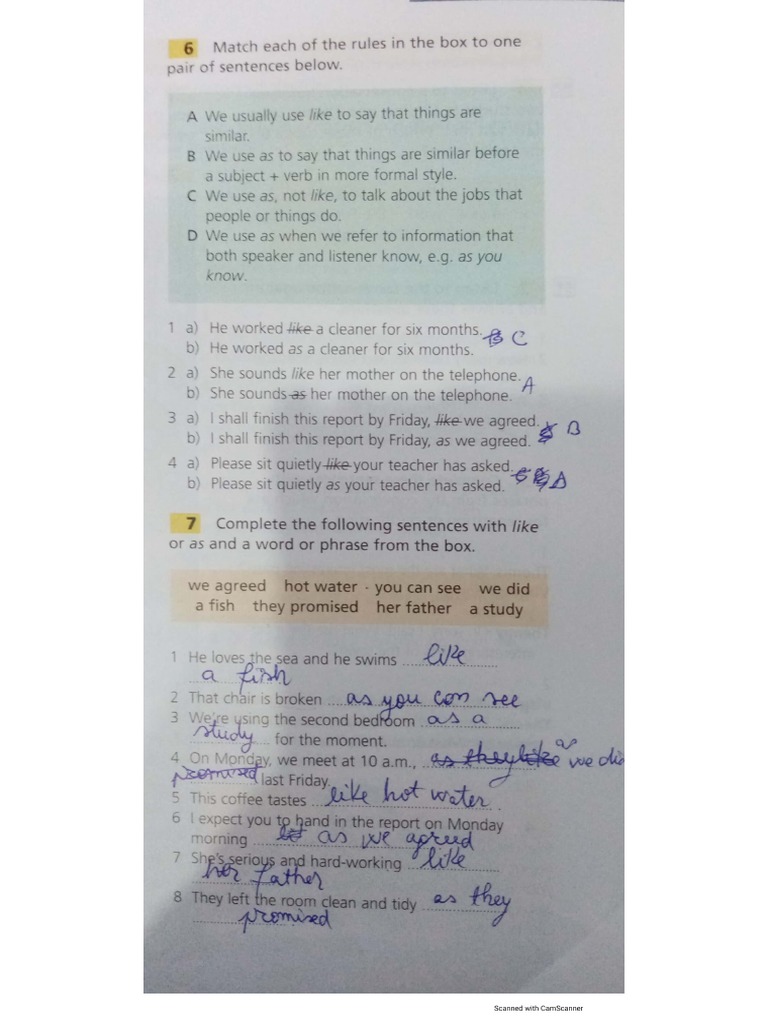 6 Match each of the rules in the box to one
pair of sentences below.
A We usually use like to say that things are
similar.
B We use as to say that things are similar before
a subject + verb in more formal style.
C We use as, not like, to talk about the jobs that
people or things do.
D We use as when we refer to information that
both speaker and listener know, e.g. as you
know.
1 a) He worked like a cleaner for six months.
b) He worked as a cleaner for six months. C
2 a) She sounds like her mother on the telephone.
b) She sounds as her mother on the telephone. A
3 a) I shall finish this report by Friday, like we agreed.
b) I shall finish this report by Friday, as we agreed. B
4 a) Please sit quietly like your teacher has asked.
b) Please sit quietly as your teacher has asked.
7 Complete the following sentences with like
or as and a word or phrase from the box.
we agreed hot water · you can see we did
a fish they promised her father a study
1 He loves the sea and he swims like
a fish
2 That chair is broken as you can see
3 We're using the second bedroom as a
study for the moment.
4 On Monday, we meet at 10 a.m., as they like as we did
promised last Friday.
5 This coffee tastes like hot water.
6 I expect you to hand in the report on Monday
morning as we agreed
7 She's serious and hard-working like
her father
8 They left the room clean and tidy as they
promised
Scanned with CamScanner